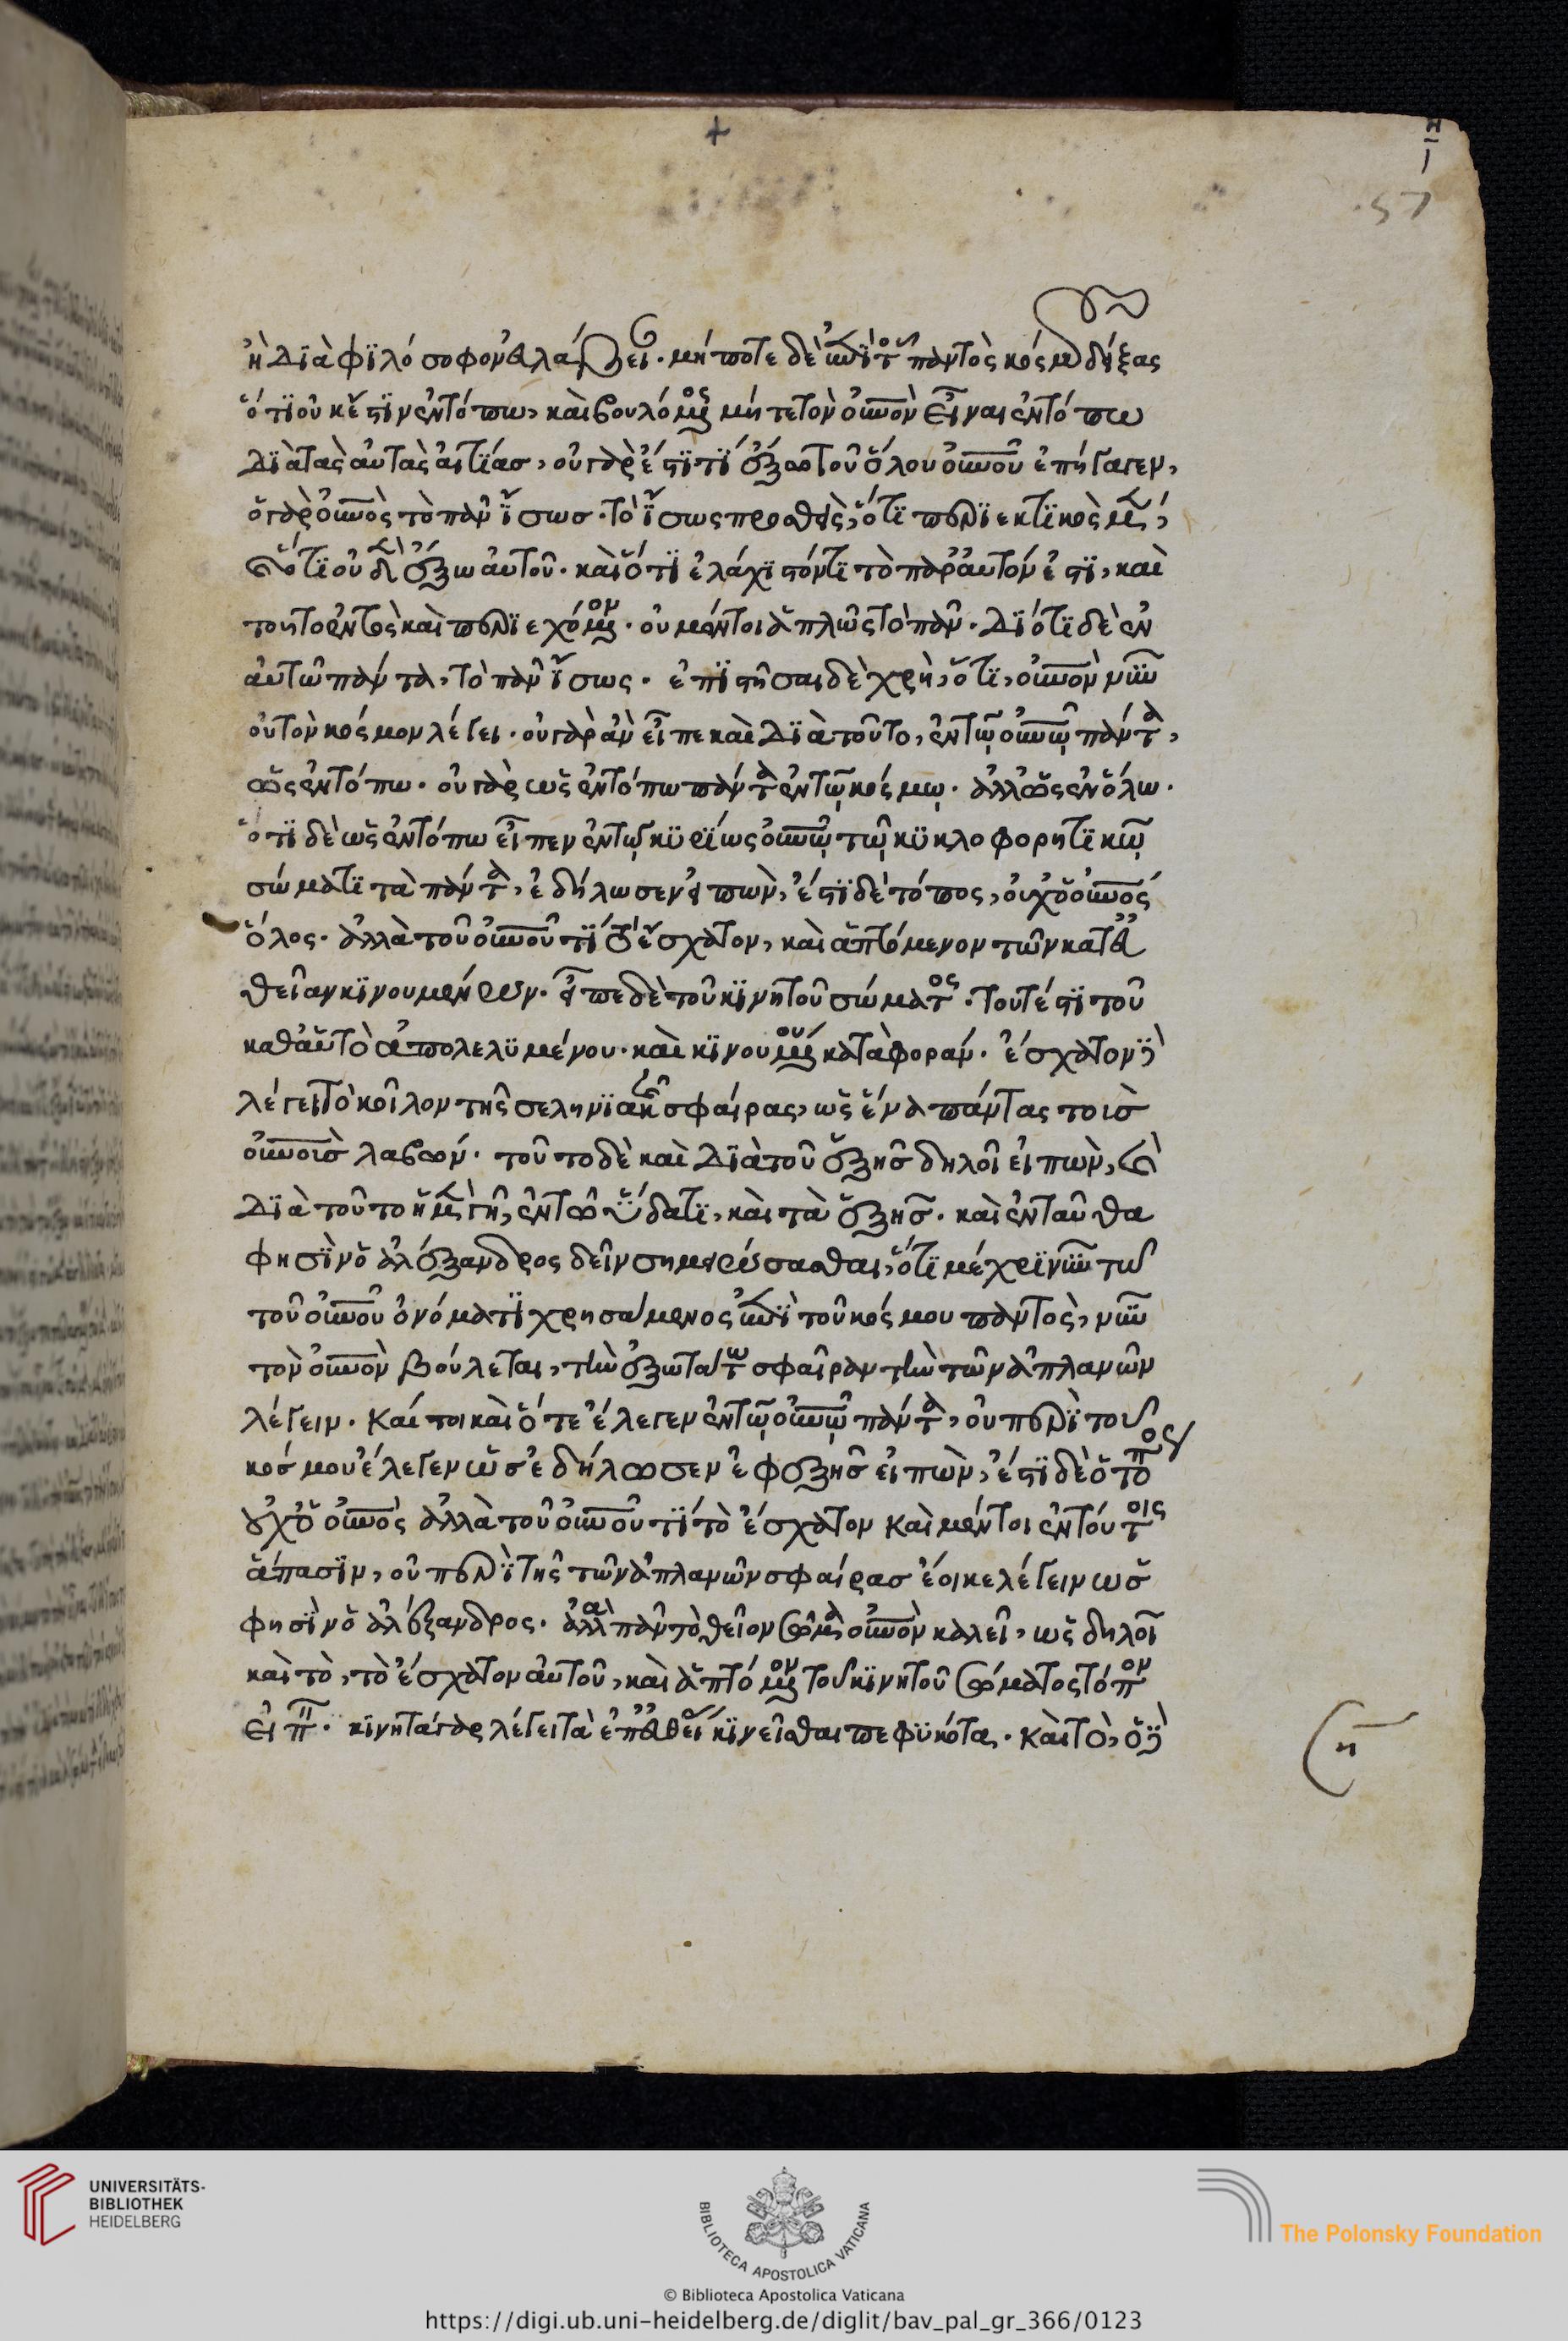 ἢ διὰ φιλόσοφον εὐλάβειαν. μήποτε δὲ ἐπὶ τοῦ παντὸς κόσμου δείξας
ὅτι οὐκ ἔστιν ἐν τόπω, καὶ βουλόμενος μήτε τὸν οὐνὸν εἶναι ἐν τόπω
διὰ τὰς αὐτὰς αἰτίασ, οὐ γάρ ἐστί τι ἔξω τοῦ ὅλου οὐνοῦ ἐπήγαγεν,
ὁ γὰρ οὐνὸς τὸ πᾶν ἴσωσ. τὸ ἴσως προσθεὶς, ὅτι περιεκτικὸς μὲν,
καὶ ὅτι οὐδὲν ἔξω αὐτοῦ. καὶ ὅτι ἐλάχιστόν τι τὸ παρ' αὐτόν ἐστι, καὶ
τοῦτο ἐντὸς καὶ περιεχόμενον. οὐ μέντοι ἁπλῶς τὸ πᾶν. διότι δὲ ἐν
αὐτῶ πάντα, τὸ πᾶν ἴσως. ἐπιστῆσαι δὲ χρὴ, ὅτι, οὐνὸν νῦν
οὐ τὸν κόσμον λέγει. οὐ γὰρ ἂν εἶπε καὶ διὰ τοῦτο, ἐν τῷ οὐνῷ πάντα,
ὡς ἐν τόπω. οὐ γὰρ ὡς ἐν τόπω πάντα ἐν τῷ κόσμῳ. ἀλλ' ὡς ἐν ὅλω.
ὅτι δὲ ὡς ἐν τόπω εἶπεν ἐν τῷ κυρίως οὐνῷ τῷ κυκλοφορητικῷ
σώματι τὰ πάντα, ἐδήλωσεν εἰπὼν, ἔστι δὲ τόπος, οὐχ ὁ οὐνός
ὅλος. ἀλλὰ τοῦ οὐνοῦ τί τὸ ἔσχατον, καὶ ἁπτόμενον τῶν κατ' εὐ
θεῖαν κινουμένων. εἶπε δὲ τοῦ κινητοῦ σώματος. τουτέστι τοῦ
καθ' αὑτὸ ἀπολελυμένου. καὶ κινουμένου κατὰ φοράν. ἔσχατον δὲ
λέγει τὸ κοῖλον τῆς σεληνιακῆς σφαίρας, ὡς ἕνα πάντας τοὺσ
οὐνοὺσ λαβών. τοῦτο δὲ καὶ διὰ τοῦ ἑξῆσ δηλοῖ εἰπὼν, καὶ
διὰ τοῦτο ἡ μὲν γῆ, ἐν τῶ ὕδατι, καὶ τὰ ἑξῆσ. καὶ ἐνταῦθα
φησὶν ὁ ἀλέξανδρος δεῖν σημειώσασθαι, ὅτι μέχρι νῦν τῶ
τοῦ οὐνοῦ ὀνόματι χρησάμενος ἐπὶ τοῦ κόσμου παντὸς, νῦν
τὸν οὐνὸν βούλεται, τὴν ἐξωτάτω σφαῖραν τὴν τῶν ἀπλανῶν
λέγειν. καίτοι καὶ ὅτε ἔλεγεν ἐν τῷ οὐνῷ πάντα, οὐ περὶ τοῦ
κόσμου ἔλεγεν ὡσ ἐδήλωσεν ἐφεξῆσ εἰπὼν, ἔστι δὲ ὁ τόπος
οὐχ ὁ οὐνὸς ἀλλὰ τοῦ οὐνοῦ τί τὸ ἔσχατον καὶ μέντοι ἐν τούτοις
ἅπασιν, οὐ περὶ τῆς τῶν ἀπλανῶν σφαίρασ ἔοικε λέγειν ὡσ
φησὶν ὁ ἀλέξανδρος. ἀλλὰ πᾶν τὸ θεῖον σῶμα οὐνὸν καλεῖ, ὡς δηλοῖ
καὶ τὸ, τὸ ἔσχατον αὐτοῦ, καὶ ἁπτόμενον τοῦ κινητοῦ σώματος τόπον
εἰπεῖν. κινητὰ γὰρ λέγει τὰ ἐπ' εὐθείας κινεῖσθαι πεφυκότα. καὶ τὸ, ὁ δὲ